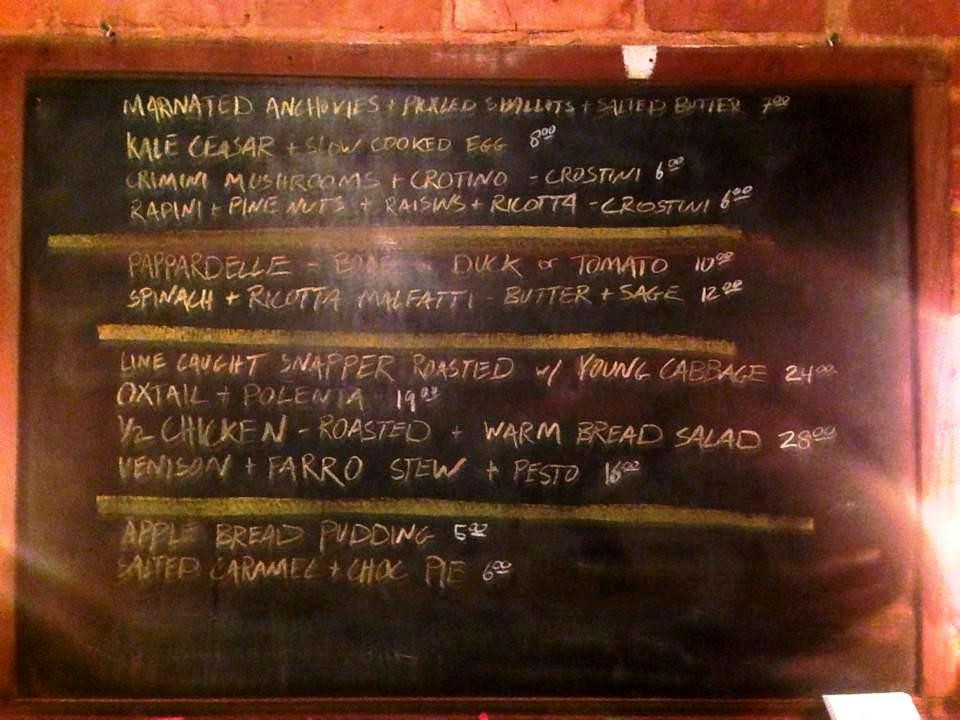 MARNATED ANCHOVIES + PICKLED SHALLOTS + SALTED BUTTER 7.00
KALE CEASAR + SLOW COOKED EGG 8.00
CRIMINI MUSHROOMS + CROTINO - CROSTINI 6.00
RAPINI + PINE NUTS + RAISINS + RICOTTA - CROSTINI 6.00
PAPPARDELLE - DUCK or TOMATO 10.00
SPINACH + RICOTTA MALFATTI - BUTTER + SAGE 12.00
LINE CAUGHT SNAPPER ROASTED w/ YOUNG CABBAGE 24.00
OXTAIL + POLENTA 19.00
1/2 CHICKEN - ROASTED + WARM BREAD SALAD 28.00
VENISON + FARRO STEW + PESTO
APPLE BREAD PUDDING 5.00
SALTED CARAMEL + CHOC PIE 6.00